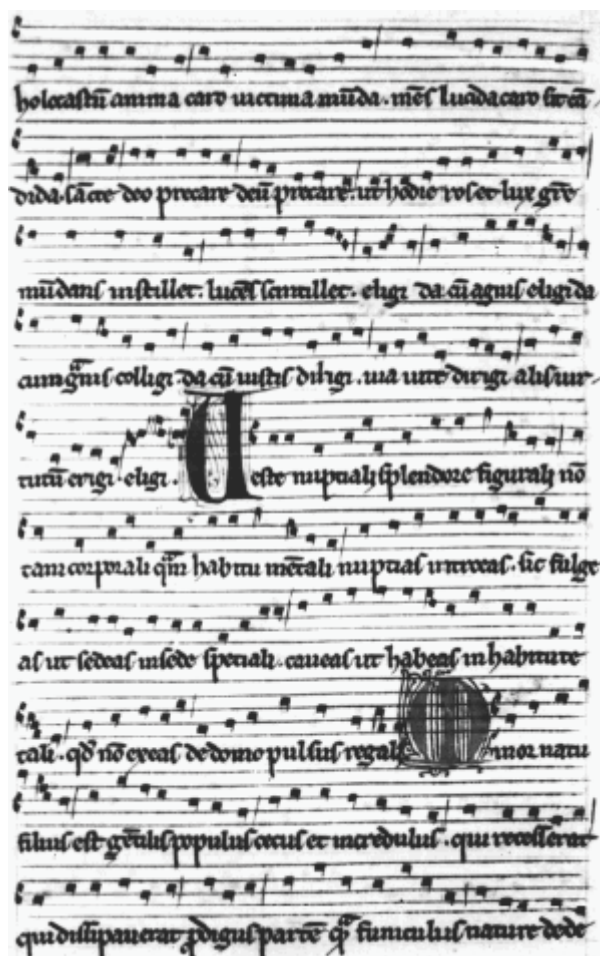 holocastū anima caro uictima mūda. mēs lucida caro sit cā
dida. sācte deo precare deū precare. ut hodie ros et lux grē
mūdans instillet. lucēs scintillet. eligi da cū agnis eligi da
cum grānis colligi. da cū iustis dirigi. uia uite dirigi alis uir
tutū erigi. eligi. Ueste nuptiali splendore figurali nō
tam corporali quā habitu mētali nuptias introeas. sic fulge
as ut sedeas in sede speciali. caueas ut habeas in habitu te
tali. qd nō exeas de domo pulsus regali Minor natu
filius est gētilis populus cecus et incredulus. qui recesserat
qui dissipauerat prodigus partē funiculus nature dede